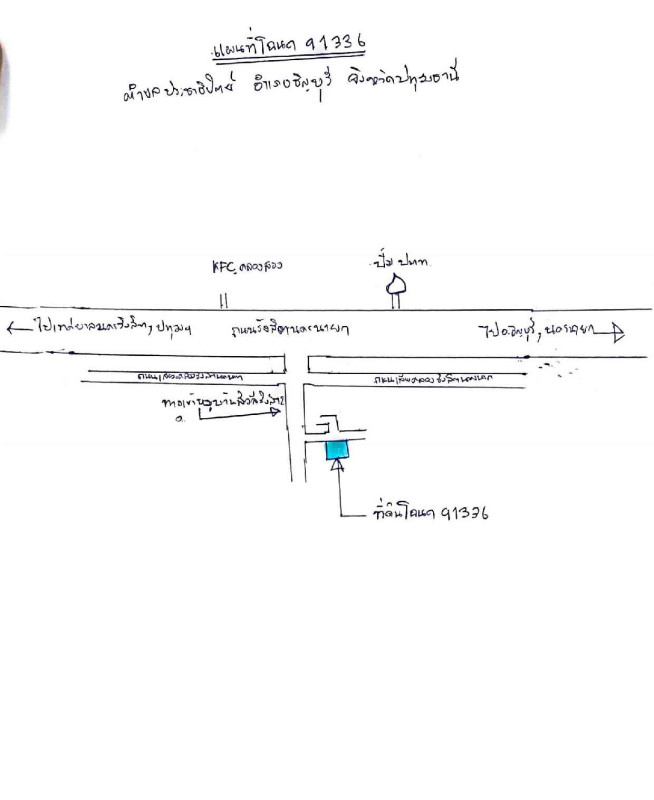 แผนที่โฉนด 91336
ตำบลประชาธิปัตย์ อำเภอธัญบุรี จังหวัดปทุมธานี
KFC คลองสอง
ปั๊ม ปตท.
ไปเทศบาลนครรังสิต, ปทุมฯ
ถนนรังสิตนครนายก
ไปอ.ธัญบุรี, นครนายก
ถนนเลียบคลองรังสิตนครนายก
ทางเข้าหมู่บ้าน
ที่ดินโฉนด 91336